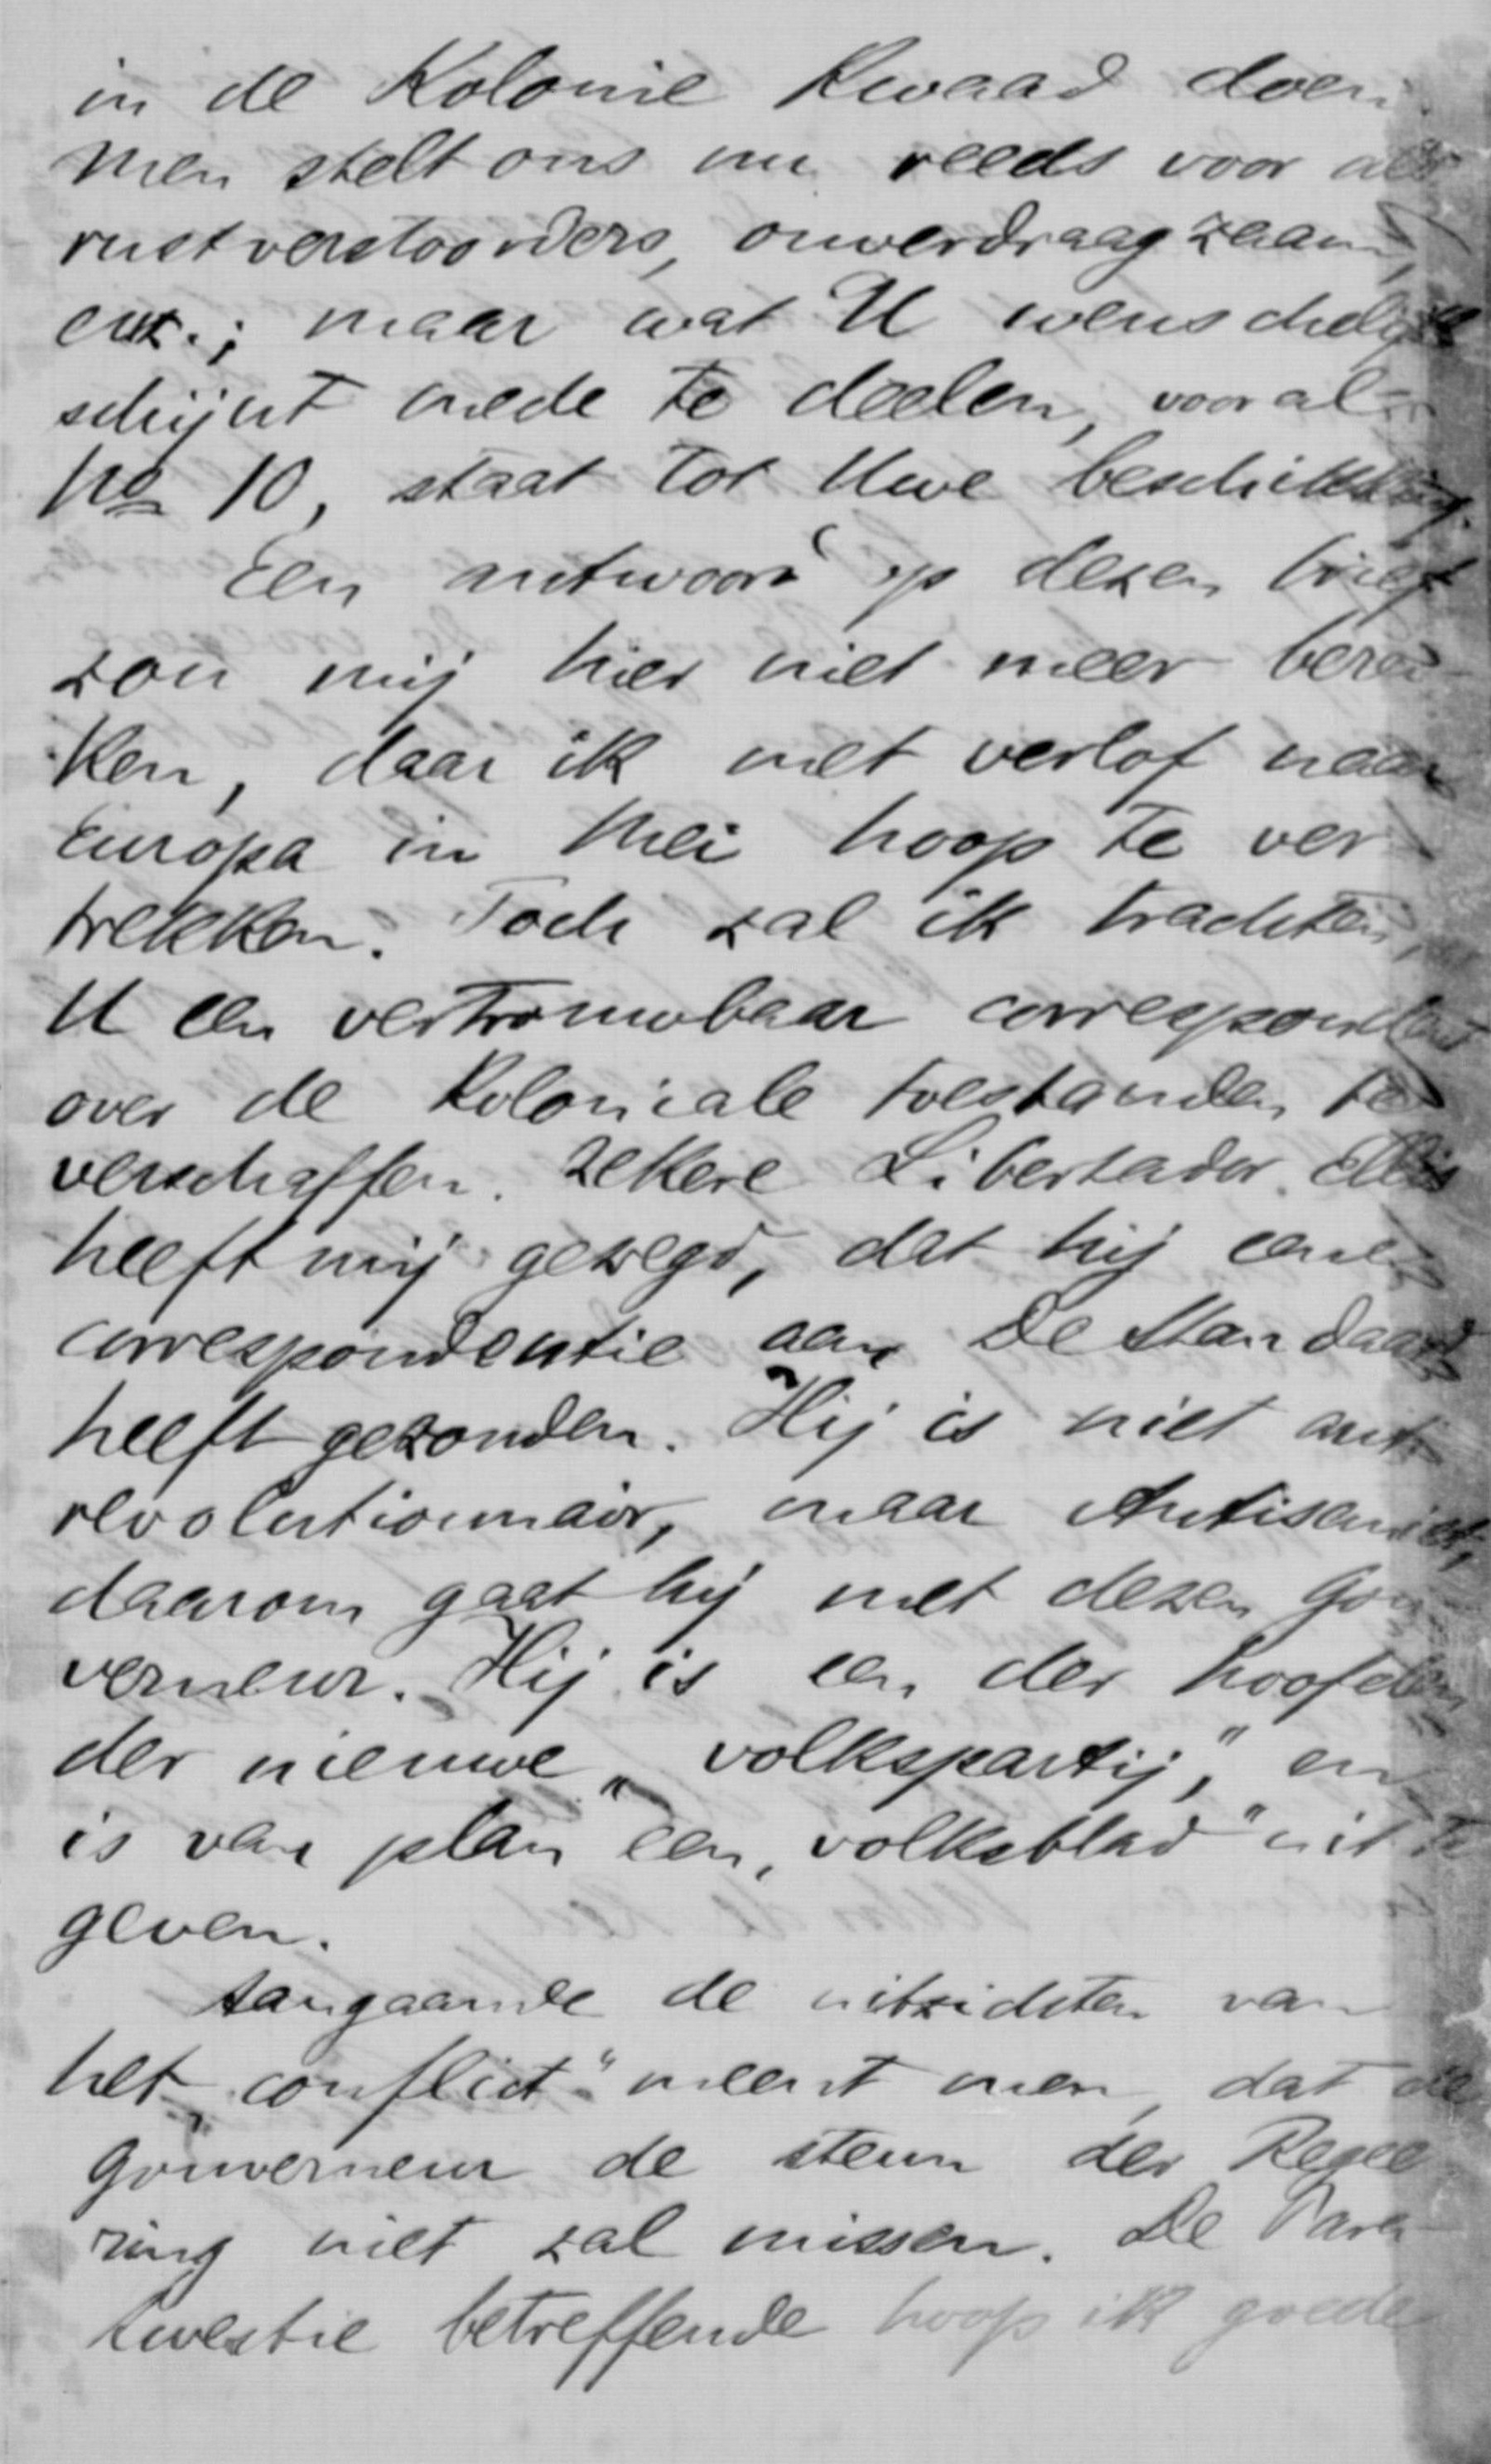 in de Kolonie kwaad doen.
Men stelt ons nu reeds voor als
rustverstoorders, onverdraagzaam,
enz.; maar wat U wenschelijk
schijnt mede te deelen, vooral
No 10, staat tot Uwe beschikking.
Een antwoord op dezen brief
zou mij hier niet meer berei-
ken, daar ik met verlof naar
Europa in Mei hoop te ver
trekken. Toch zal ik trachten,
U een vertrouwbaar correspondent
over de Koloniale toestanden te
verschaffen. Zekere Libertador Ellis
heeft mij gezegd, dat hij eene
correspondentie aan De Standaard
heeft gezonden. Hij is niet anti
revolutionnair, maar Antisemiet,
daarom gaat hij met dezen Gou
verneur. Hij is een der hoofden
der nieuwe „volkspartij," en
is van plan een „volksblad" uit te
geven.
Aangaande de uitzichten van
het „conflict" meent men, dat de
Gouverneur de steun der Regee
ring niet zal missen. De
kwestie betreffende hoop ik goede